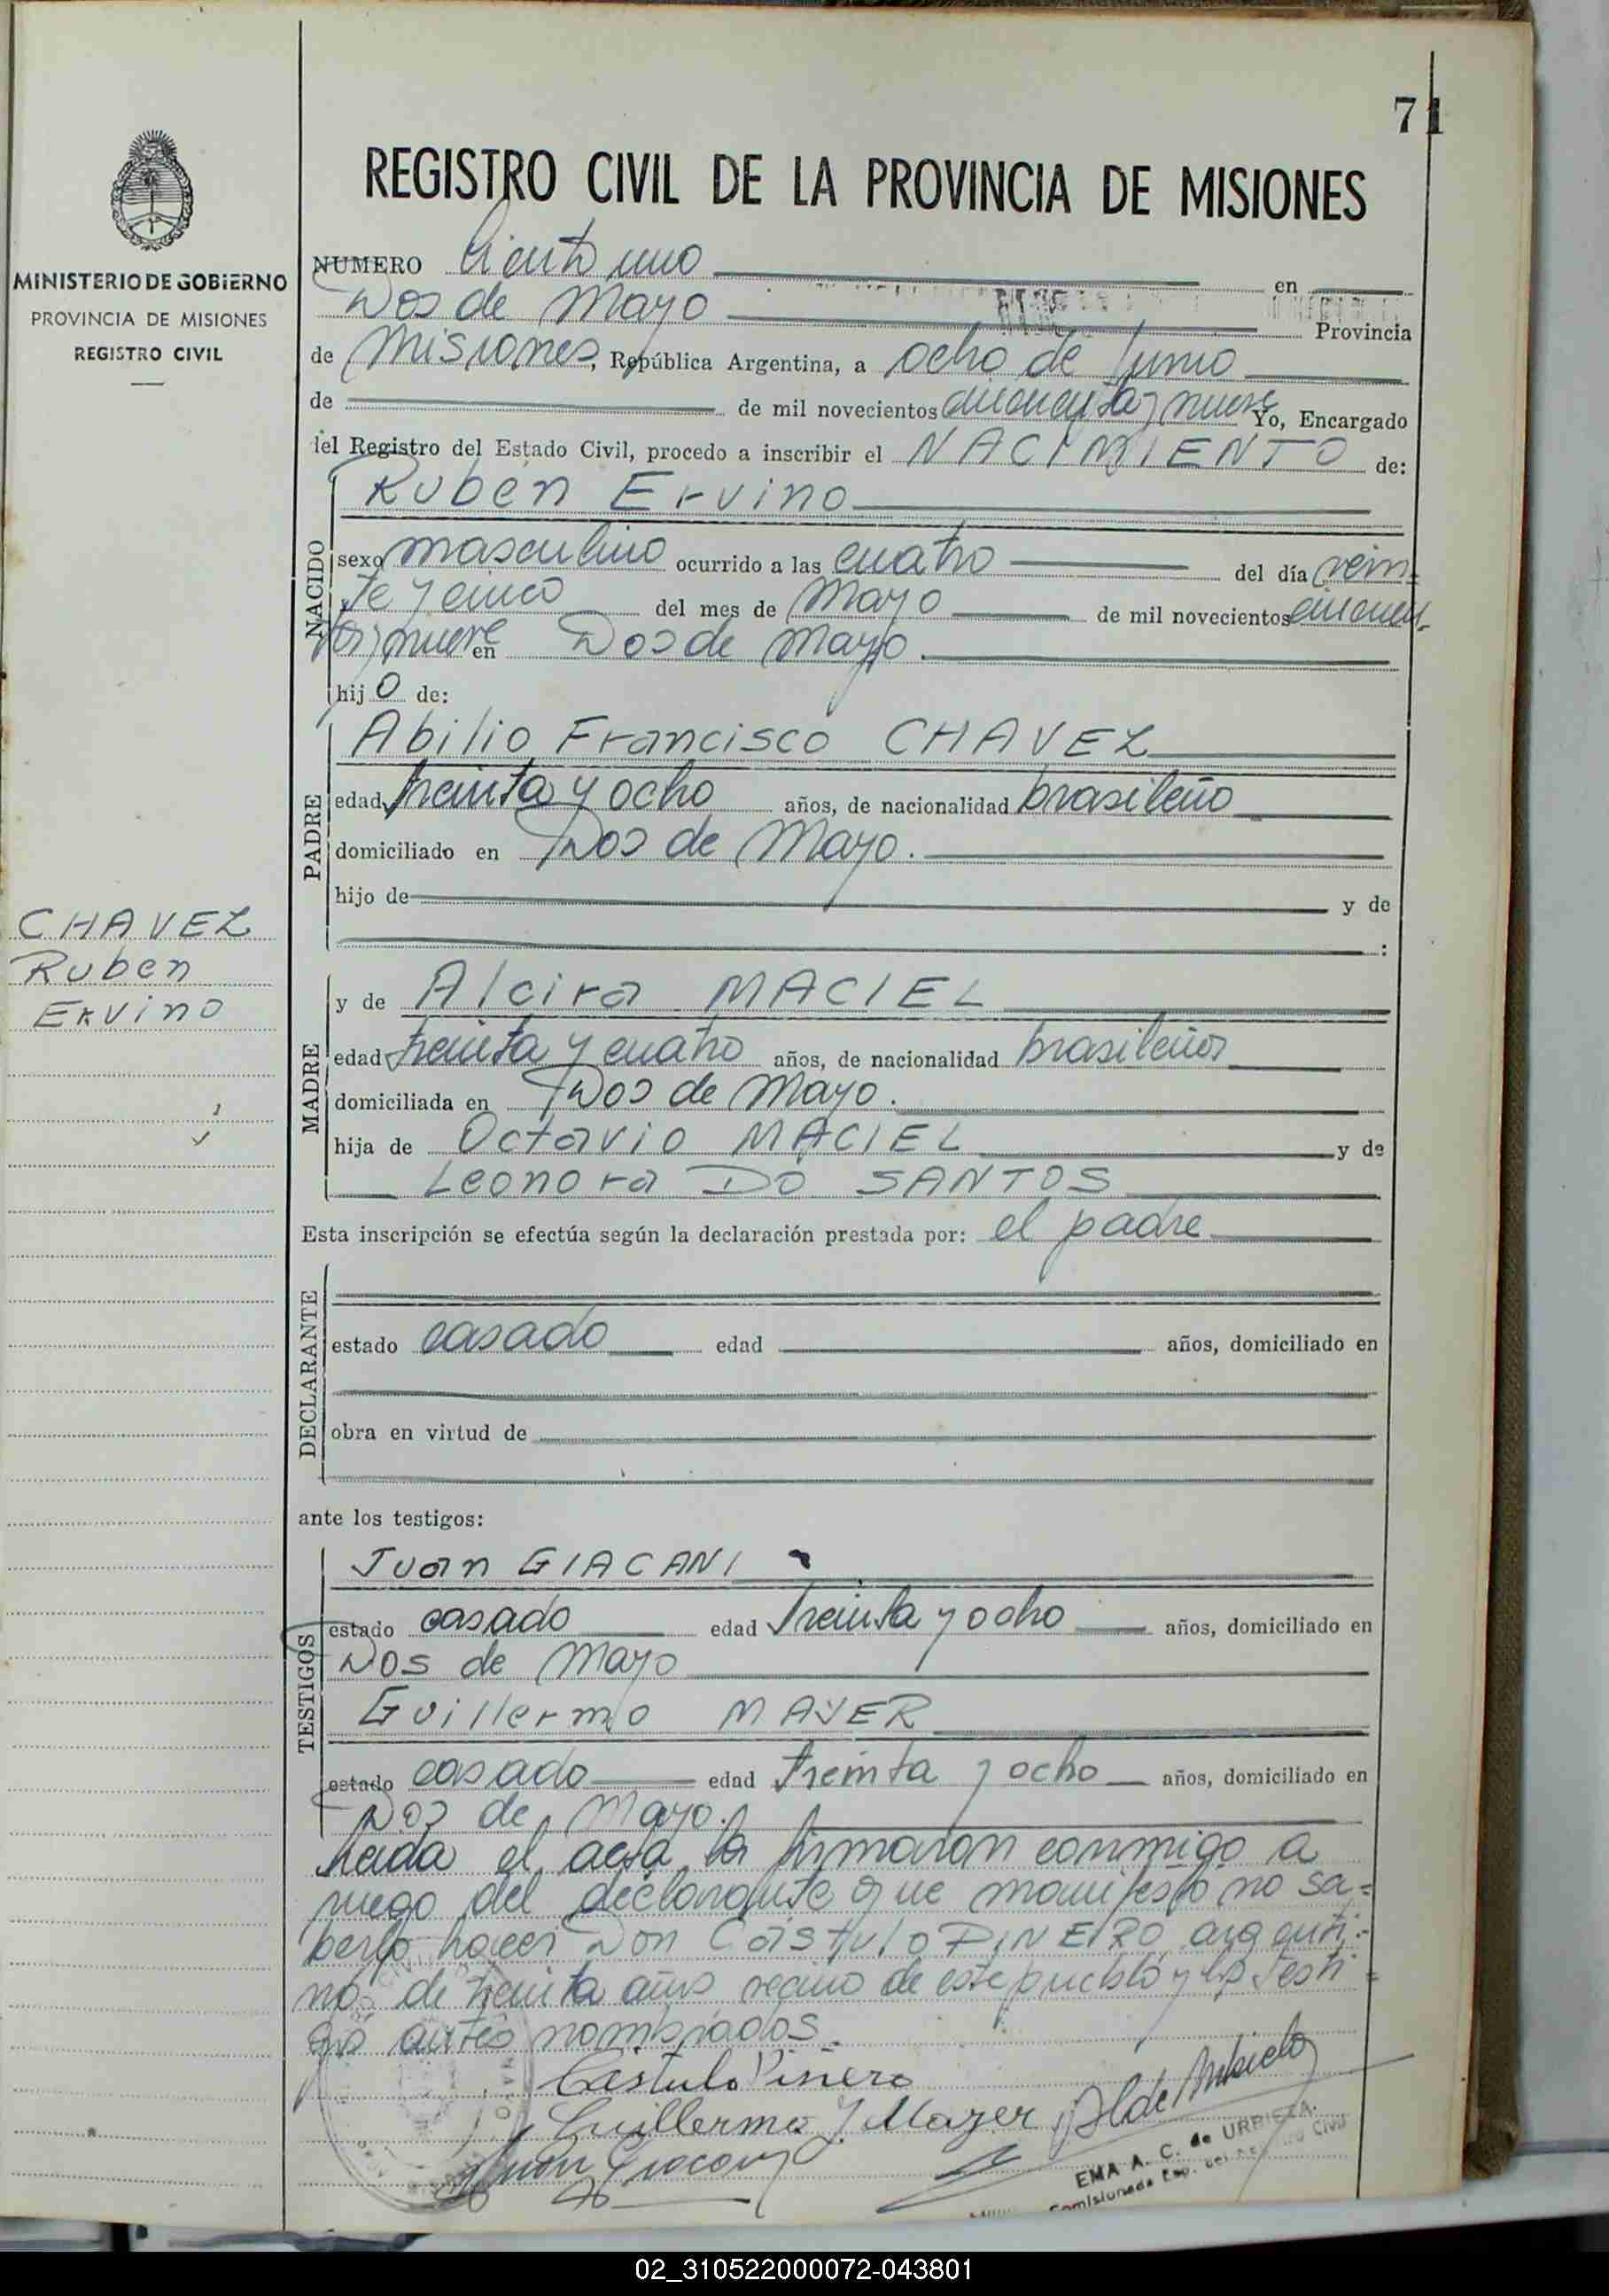 71
REGISTRO CIVIL DE LA PROVINCIA DE MISIONES
MINISTERIO DE GOBIERNO
PROVINCIA DE MISIONES
REGISTRO CIVIL
NUMERO Ciento uno en
Dos de Mayo Provincia
de Misiones, República Argentina, a ocho de Junio
de de mil novecientos cincuenta y nueve Yo, Encargado
del Registro del Estado Civil, procedo a inscribir el NACIMIENTO de:
NACIDO
Ruben Ervino
sexo masculino ocurrido a las cuatro del día vein-
te y cinco del mes de Mayo de mil novecientos cincuen-
ta y nueve en Dos de Mayo
hijo de:
PADRE
Abilio Francisco CHAVEZ
edad treinta y ocho años, de nacionalidad brasileño
domiciliado en Dos de Mayo.
hijo de y de
:
CHAVEZ
Ruben
Ervino
MADRE
y de Alcira MACIEL
edad treinta y cuatro años, de nacionalidad brasileña
domiciliada en Dos de Mayo.
hija de Octavio MACIEL y de
Leonora DO SANTOS
Esta inscripción se efectúa según la declaración prestada por: el padre
DECLARANTE
estado casado edad años, domiciliado en
obra en virtud de
ante los testigos:
TESTIGOS
Juan GIACANI
estado casado edad treinta y ocho años, domiciliado en
Dos de Mayo
Guillermo MAYER
estado casado edad treinta y ocho años, domiciliado en
Dos de Mayo.
Leida el acta la firmaron conmigo a
ruego del declarante que manifesto no sa-
berlo hacer Don Castulo PINEIRO argenti-
no de treinta años vecino de este pueblo y los testi-
gos antes nombrados.
Castulo Piñero
Guillermo J. Mayer
Juan
EMA A. C. de URBIETA
Comisionada Civil
02_310522000072-043801